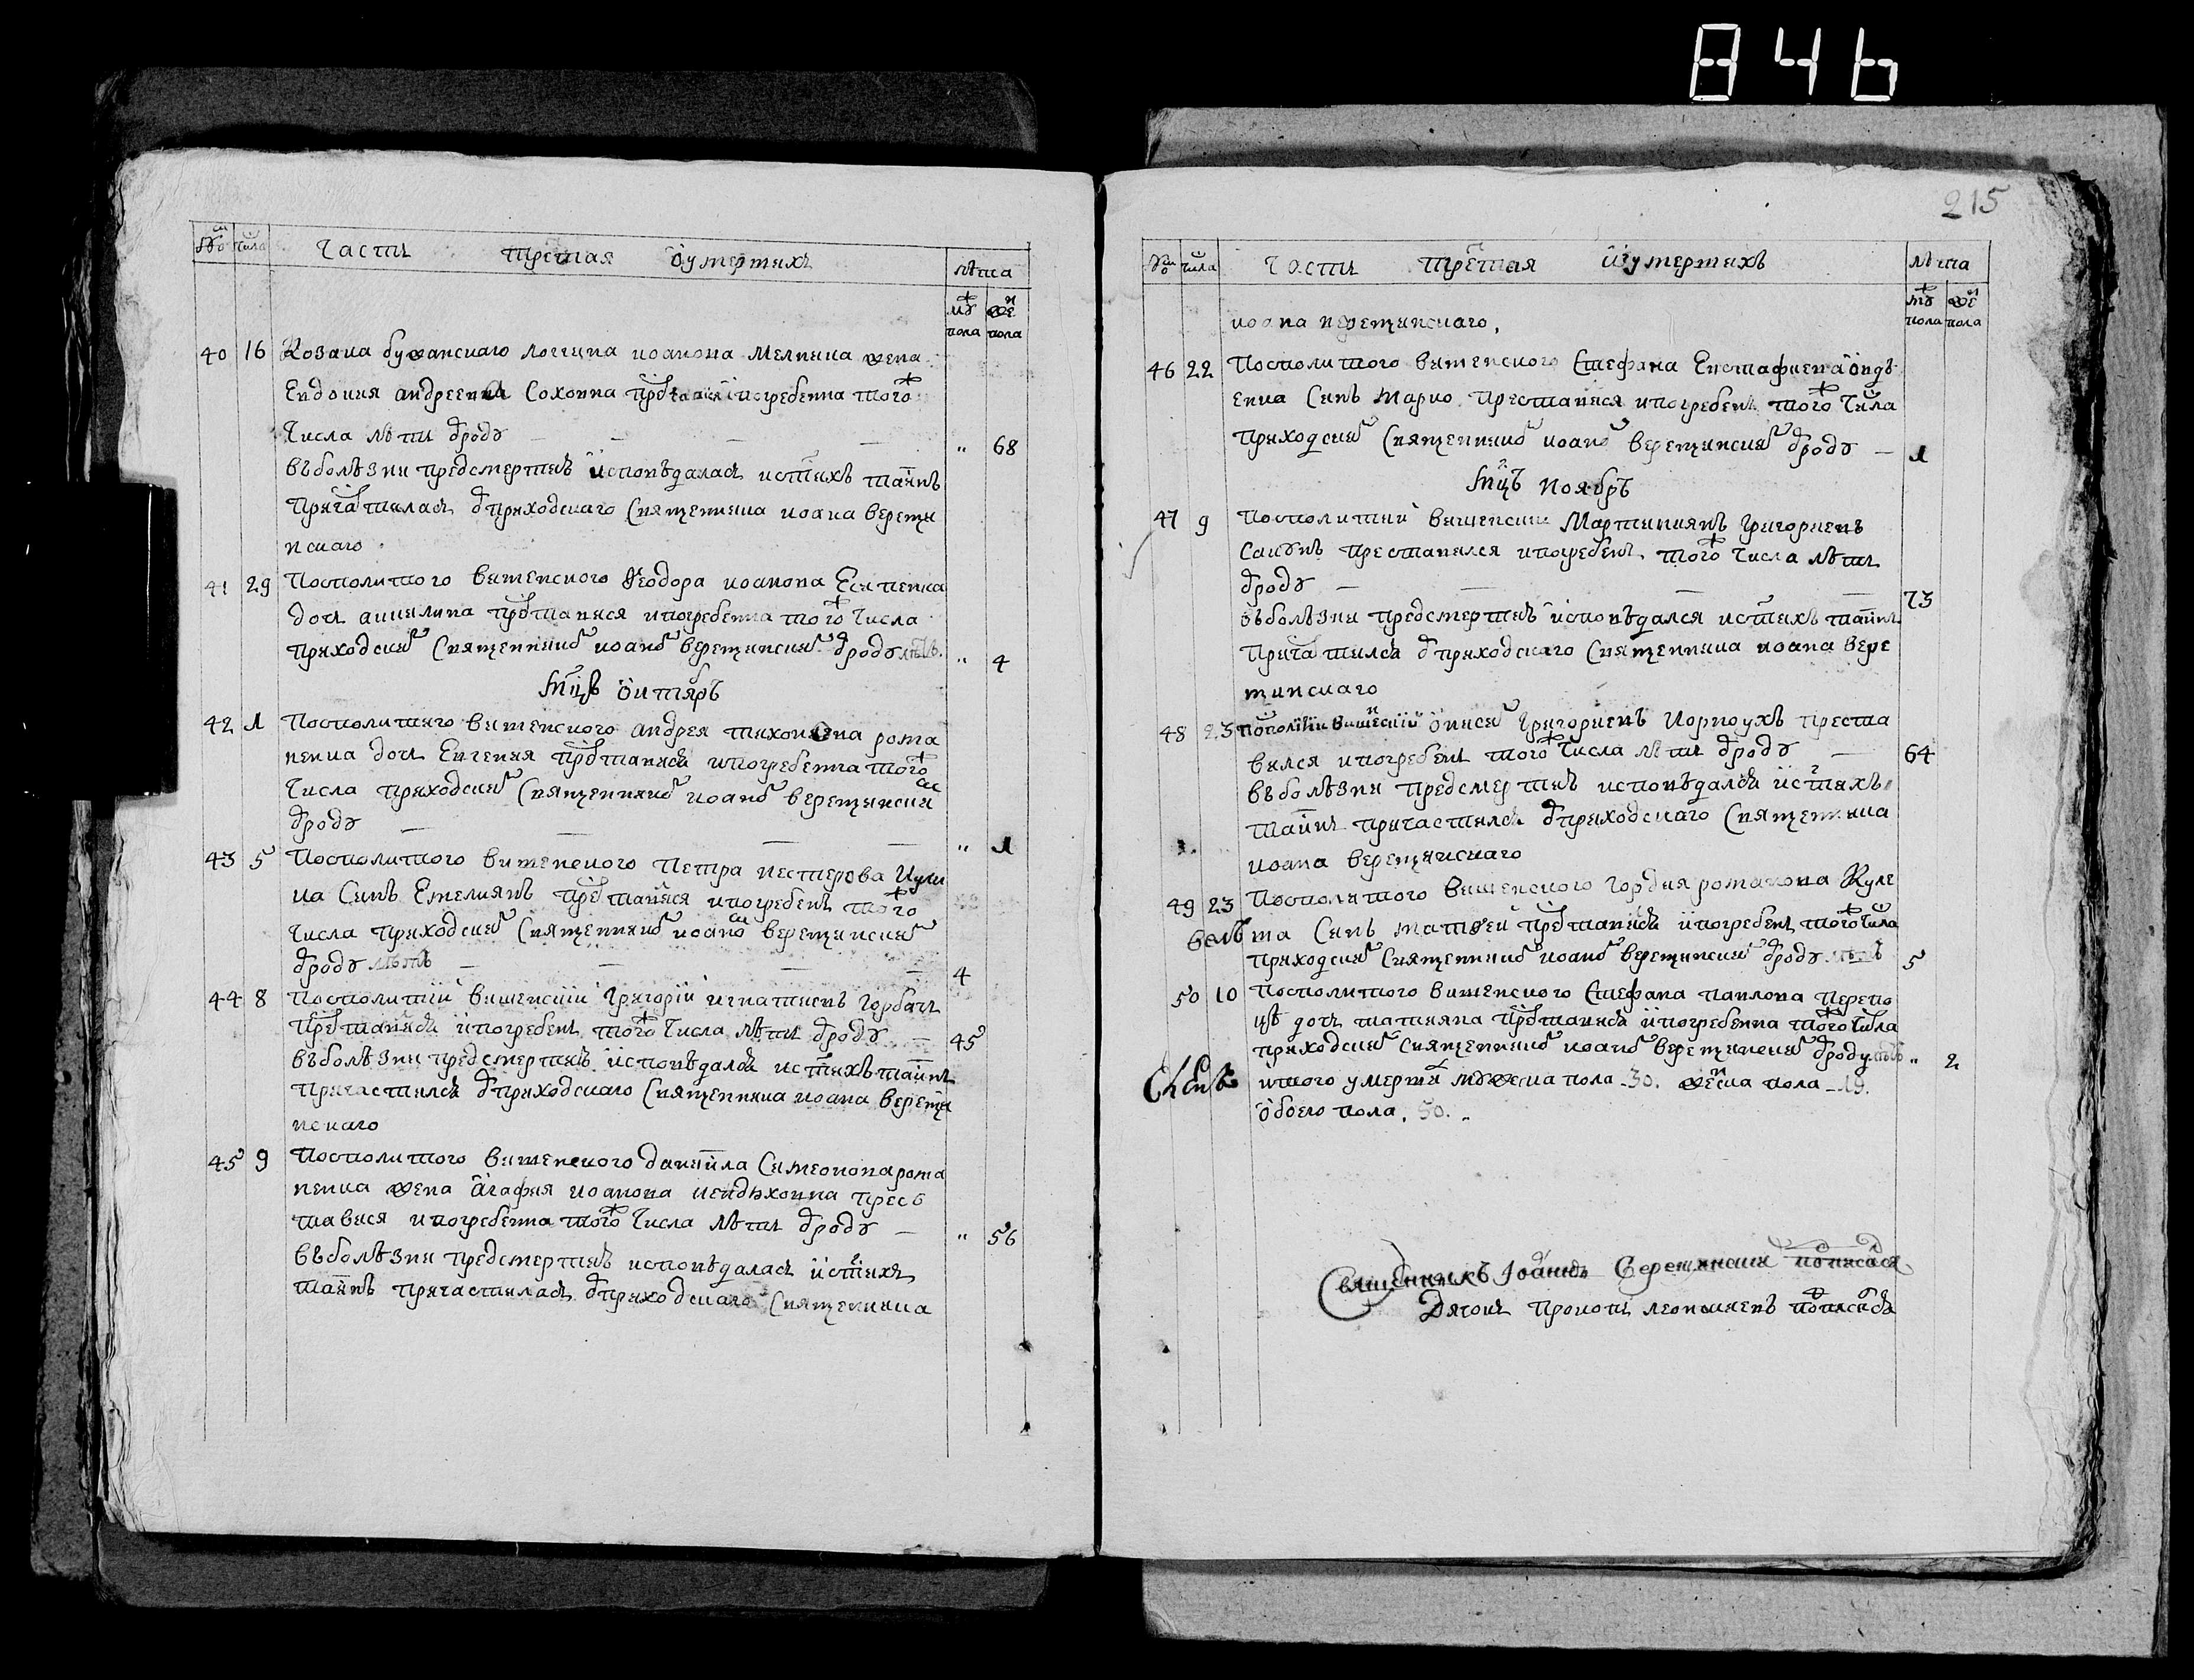 846
215
числа Части третая о умертихъ лѣта
муж пола жен пола
40 16 Козака бужанскаго логгина иоанова Мелника жена
Евдокия андреевна Сохонна престависѧ погребенна того
числа лѣти ѿроду — — — — " 68
въболѣзни предсмертнѣ исповѣдаласъ истихъ таинъ
Причастиласъ ѿприходскаго Священника иоана верещи
нскаго
41 29 Посполитого вишенского Ѳеодора иоанова Есипенка
дочъ акилина преставися ипогребенна того числа
приходским Священником иоаном верещинским ѿроду лѣтъ " 4
мцъ октябръ
42 1 Посполитаго вишенского андрея тихонова рома
ненка дочъ Евгения преставися ипогребенна того
числа приходским Священником иоаном верещински
ѿроду — — — — " 1
43 5 Посполитого вишенского Петра нестерова
ка Синъ Емелиянъ преставися ипогребенъ того
числа приходским Священником иоаном верещинским
ѿроду лѣтъ — — — — 4
44 8 Посполитий вишенский Григорий игнатиевъ горбачъ
преставися ипогребенъ того числа лѣти ѿроду — 45
въболѣзни предсмертнѣ исповѣдался истихъ таинъ
Причастился ѿприходскаго Священника иоана верещи
нскаго
45 9 Посполитого вишенского даниила Симеонова рома
ненка жена агафия иоанова прес
тавися ипогребенна того числа лѣти ѿроду — " 56
въболѣзни предсмертнѣ исповѣдаласъ истихъ
таинъ причастиласъ ѿприходскаго Священника
числа Части третая о умертихъ лѣта
муж пола жен пола
иоана верещинскаго,
46 22 Посполитого вишенского Стефана Евстафиева
енка Синъ Марко преставися ипогребенъ того числа
приходским Священником иоаном верещинским ѿроду — 1
мцъ Ноябръ
47 9 Посполитий вишенский Мартиниянъ Григориевъ
преставился ипогребенъ того числа лѣти
ѿроду — — — — 73
въболѣзни предсмертнѣ исповѣдался истихъ таинъ
Причастился ѿприходскаго Священника иоана вере
щинскаго
48 23 посполитий вишенский Григориевъ Корноухъ преста
вился ипогребенъ того числа лѣти ѿроду — 64
въболѣзни предсмертнѣ исповѣдался истихъ
таинъ причастился ѿприходскаго Священника
иоана верещинскаго
49 23 Посполитого вишенского Гордия романова Куле
та Синъ матфей преставися ипогребенъ того числа
приходским Священником иоаном верещинским ѿроду лѣтъ 5
50 10 Посполитого вишенского Стефана павлова Перепо
дочъ татияна преставися ипогребенна того числа
приходским священником иоаном верещинским ѿроду " 2
итого умерти мужеска пола 30. женска пола 19.
обоего пола, 50.
Священникъ Іоаннъ Верещински подписался
Дячокъ Прокопъ леонтиевъ подписался